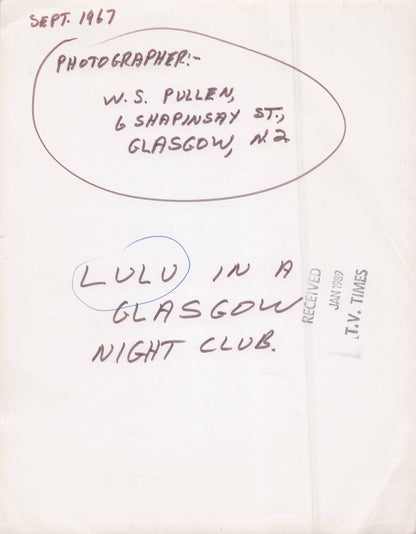 SEPT. 1967
PHOTOGRAPHER:-
W. S. PULLEN,
6 SHAPINSAY ST.,
GLASGOW, N.2
LULU IN A
GLASGOW
NIGHT CLUB.
RECEIVED
JAN 1989
T.V. TIMES